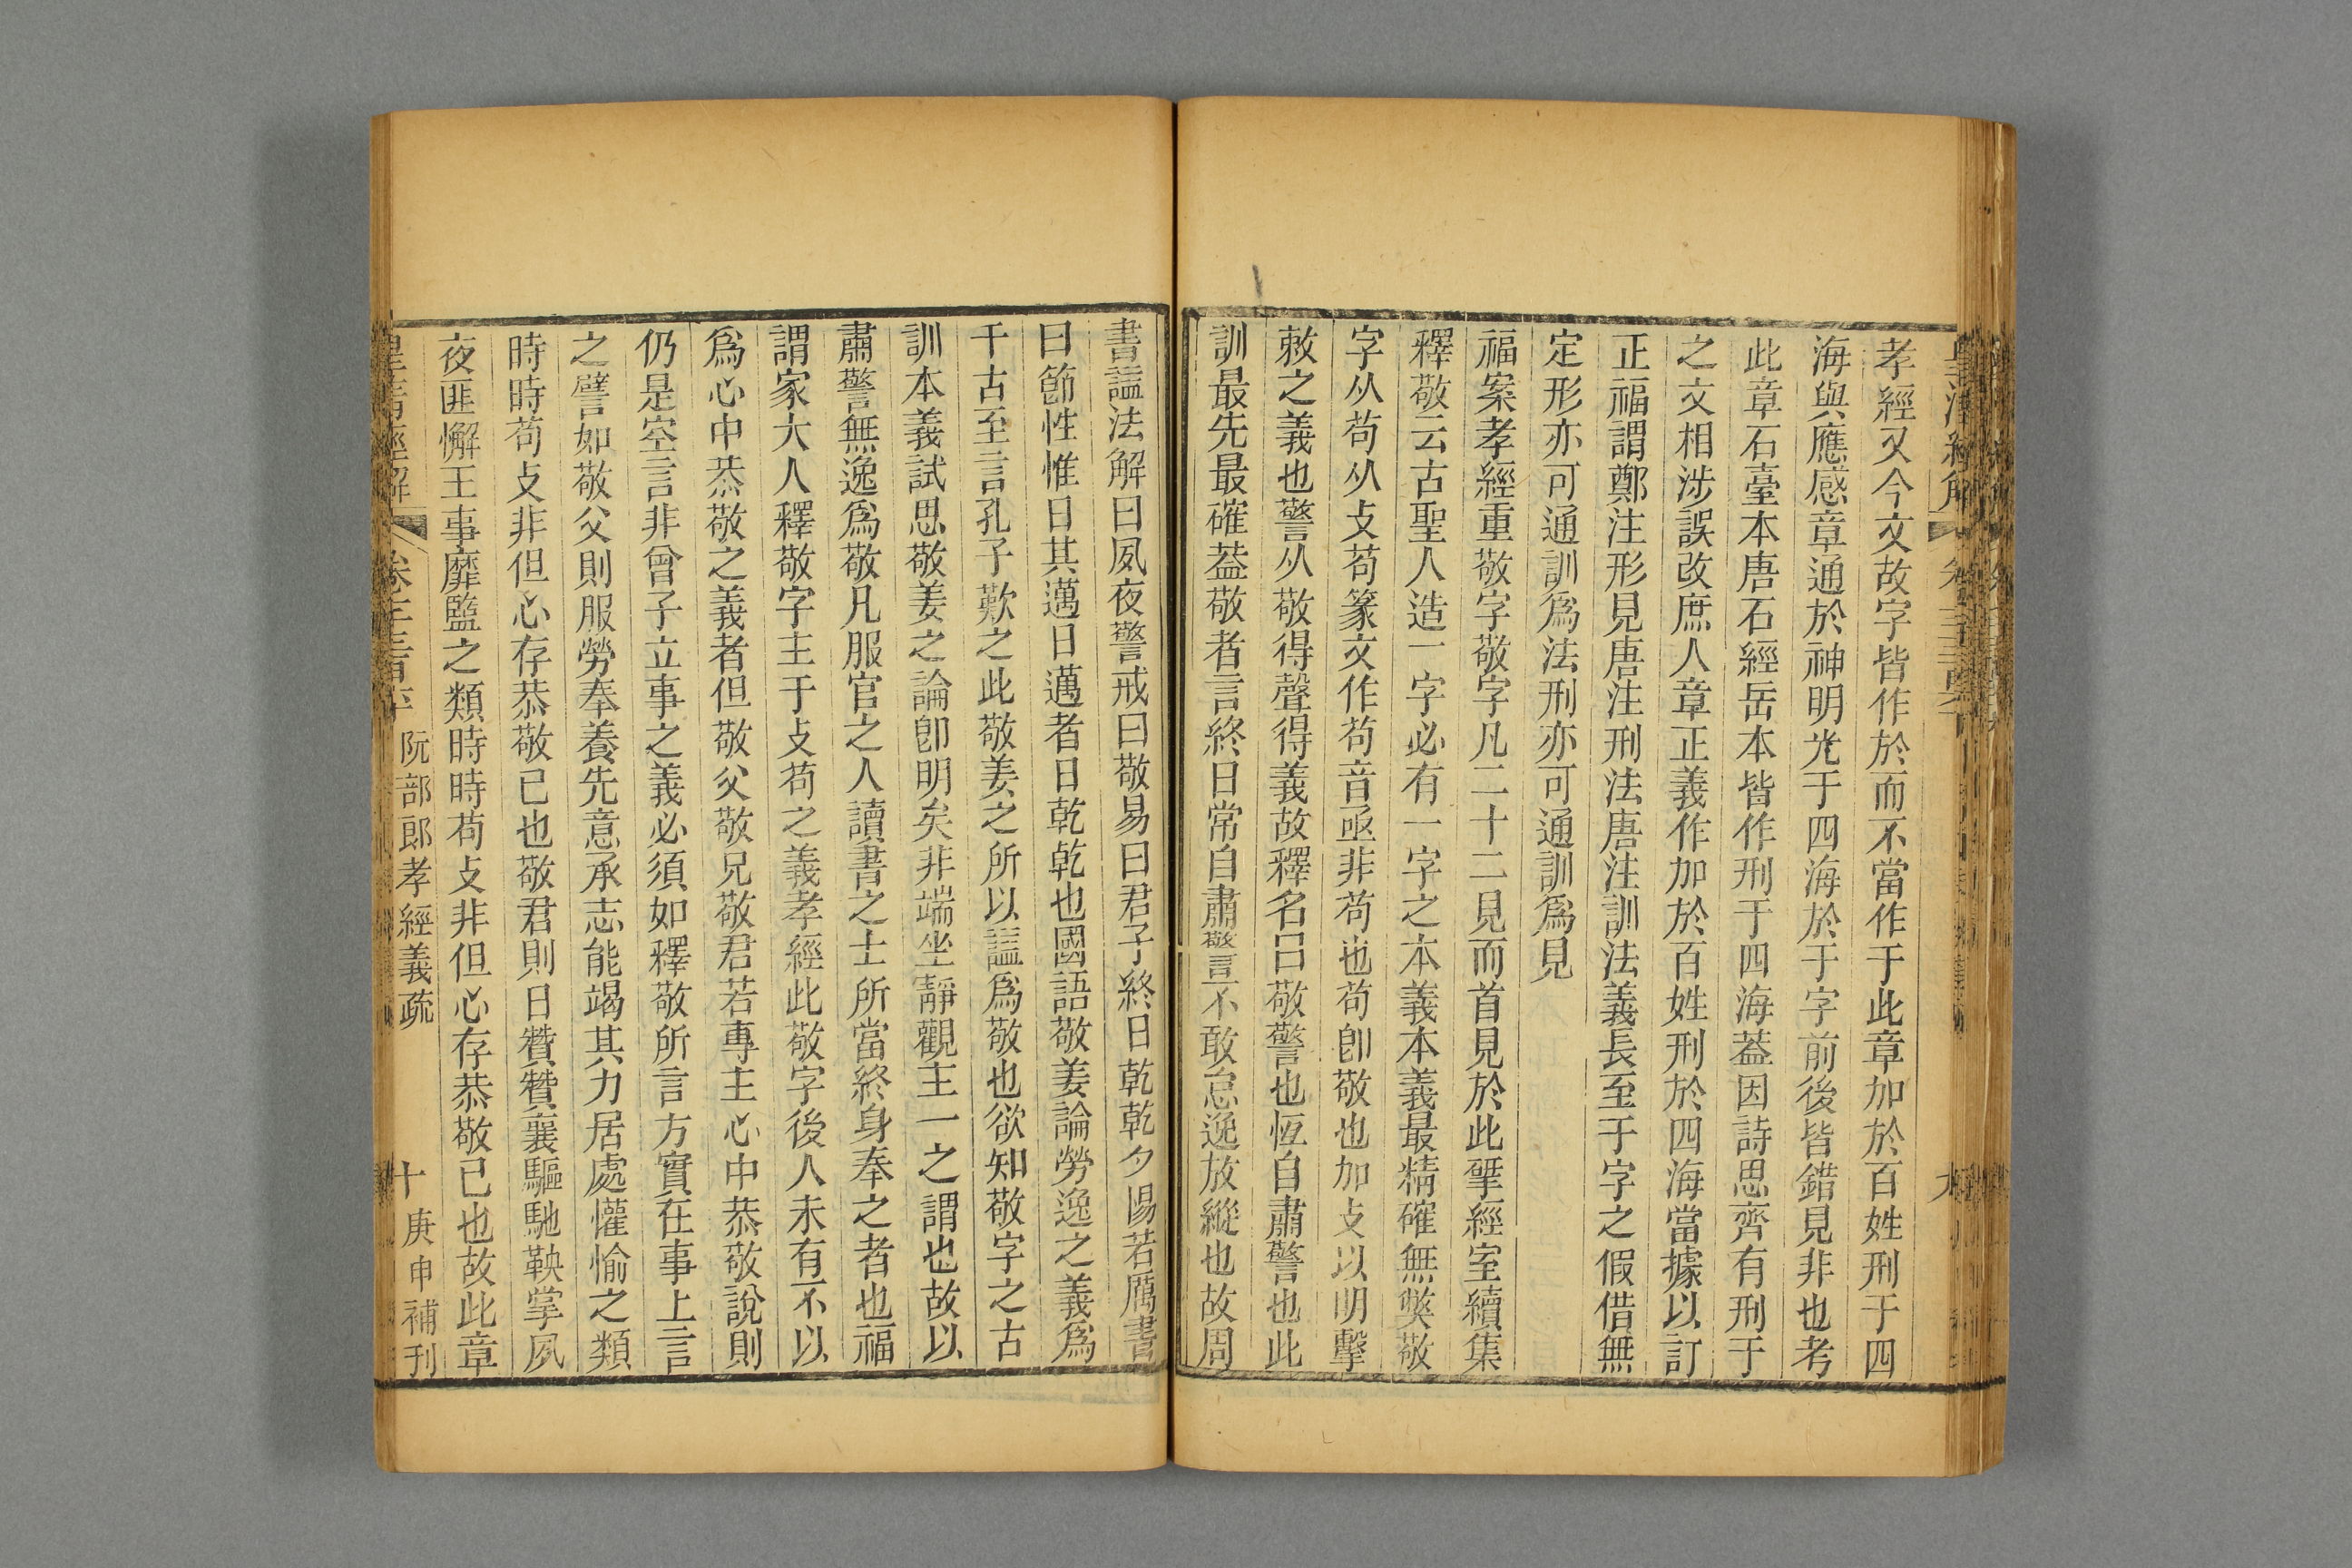 孝經又今文故字皆作於而不當作于此章加於百姓刑于四
海與應感章通於神明光于四海於于字前後皆錯見非也考
此章石臺本唐石經岳本皆作刑于四海蓋因詩思齊有刑于
之文相涉誤改庶人章正義作加於百姓刑於四海當據以訂
正福謂鄭注形見唐注刑法唐注訓法義長至于字之假借無
定形亦可通訓爲法刑亦可通訓爲見
福案孝經重敬字敬字凡二十二見而首見於此揅經室續集
釋敬云古聖人造一字必有一字之本義本義最精確無獘敬
字从茍从攴茍篆文作茍音亟非苟也茍卽敬也加攴以明擊
敕之義也警从敬得聲得義故釋名曰敬警也恆自肅警也此
訓最先最確葢敬者言終日常自肅警不敢怠逸放縱也故周
書諡法解曰夙夜警戒曰敬易曰君子終日乾乾夕惕若厲書
曰節性惟日其邁日邁者日乾乾也國語敬姜論勞逸之義爲
千古至言孔子歎之此敬姜之所以諡爲敬也欲知敬字之古
訓本義試思敬姜之論卽明矣非端坐靜觀主一之謂也故以
肅警無逸爲敬凡服官之人讀書之士所當終身奉之者也福
謂家大人釋敬字主于攴茍之義孝經此敬字後人未有不以
爲心中恭敬之義者但敬父敬兄敬君若專主心中恭敬說則
仍是空言非曾子立事之義必須如釋敬所言方實在事上言
之譬如敬父則服勞奉養先意承志能竭其力居處懽愉之類
時時茍攴非但心存恭敬已也敬君則日贊贊襄驅馳鞅掌夙
夜匪懈王事靡盬之類時時茍攴非但心存恭敬已也故此章
皇清經解 阮部郎孝經義疏 十 庚申補刊